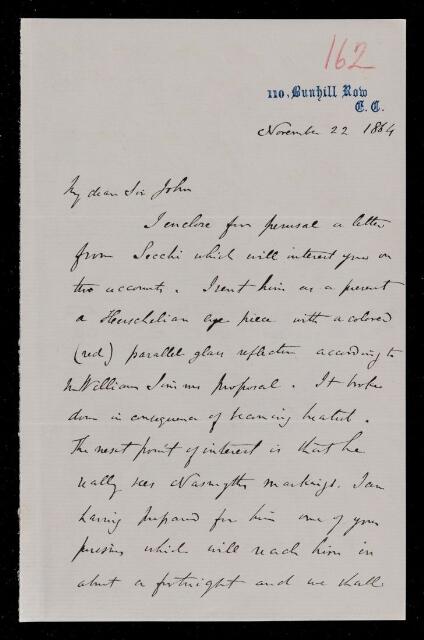 162
110, Bunhill Row
E. C.
November 22 1864
My dear Sir John
I enclose for perusal a letter
from Secchi which will interest you on
two accounts. I sent him as a present
a Herschelian eye piece with a colored
(red) parallel glass reflector according to
Mr William Simms proposal. It broke
down in consequence of becoming heated.
The next point of interest is that he
really sees Nasmyths markings. I am
having prepared for him one of your
prisms which will reach him in
about a fortnight and we shall